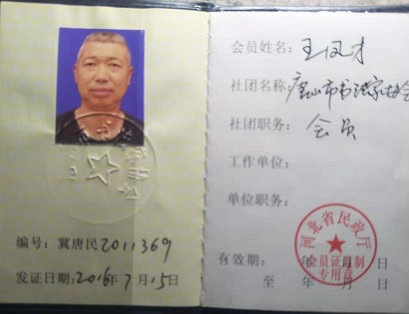 编号: 冀唐民2011369
发证日期: 2016年7月15日
会员姓名: 王汉才
社团名称: 唐山市书法家协会
社团职务: 会员
工作单位:
单位职务:
有效期: 年 月 日
至 年 月 日
河北省民政厅
会员证监制
专用章